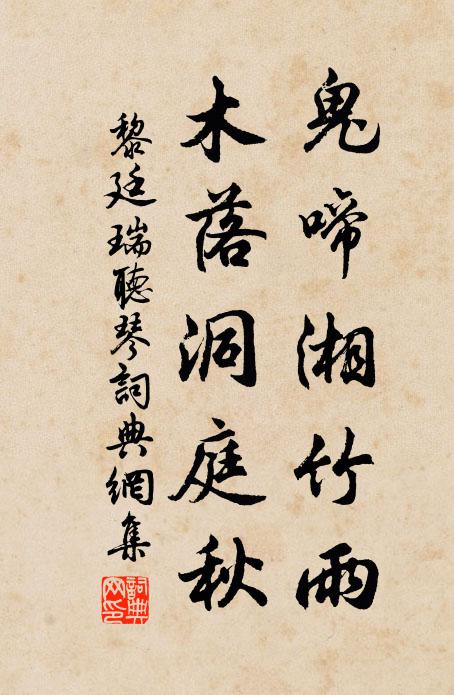 鬼啼湘竹雨
木落洞庭秋
黎廷瑞聽琴詞典網集
詞典网印